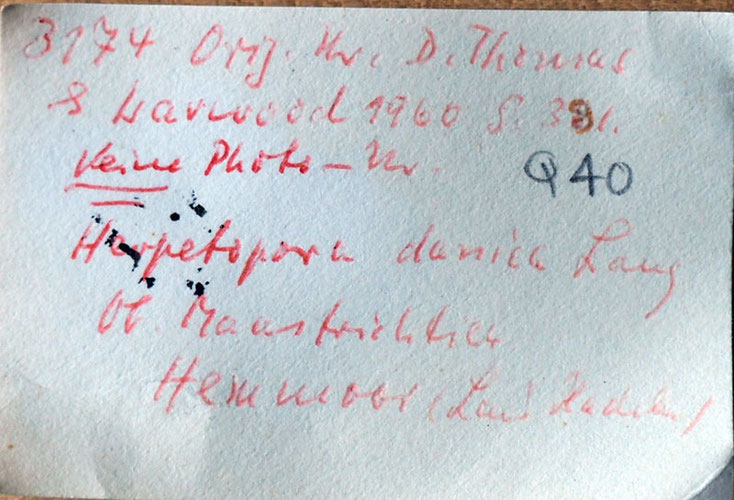 3174 Orig. Nr. D. Thomas
& Larwood 1960 S. 381.
keine Photo-Nr.
Q40
Herpetopora danica Lang
Ob. Maastrichtien
Hemmoor (Land Hadeln)